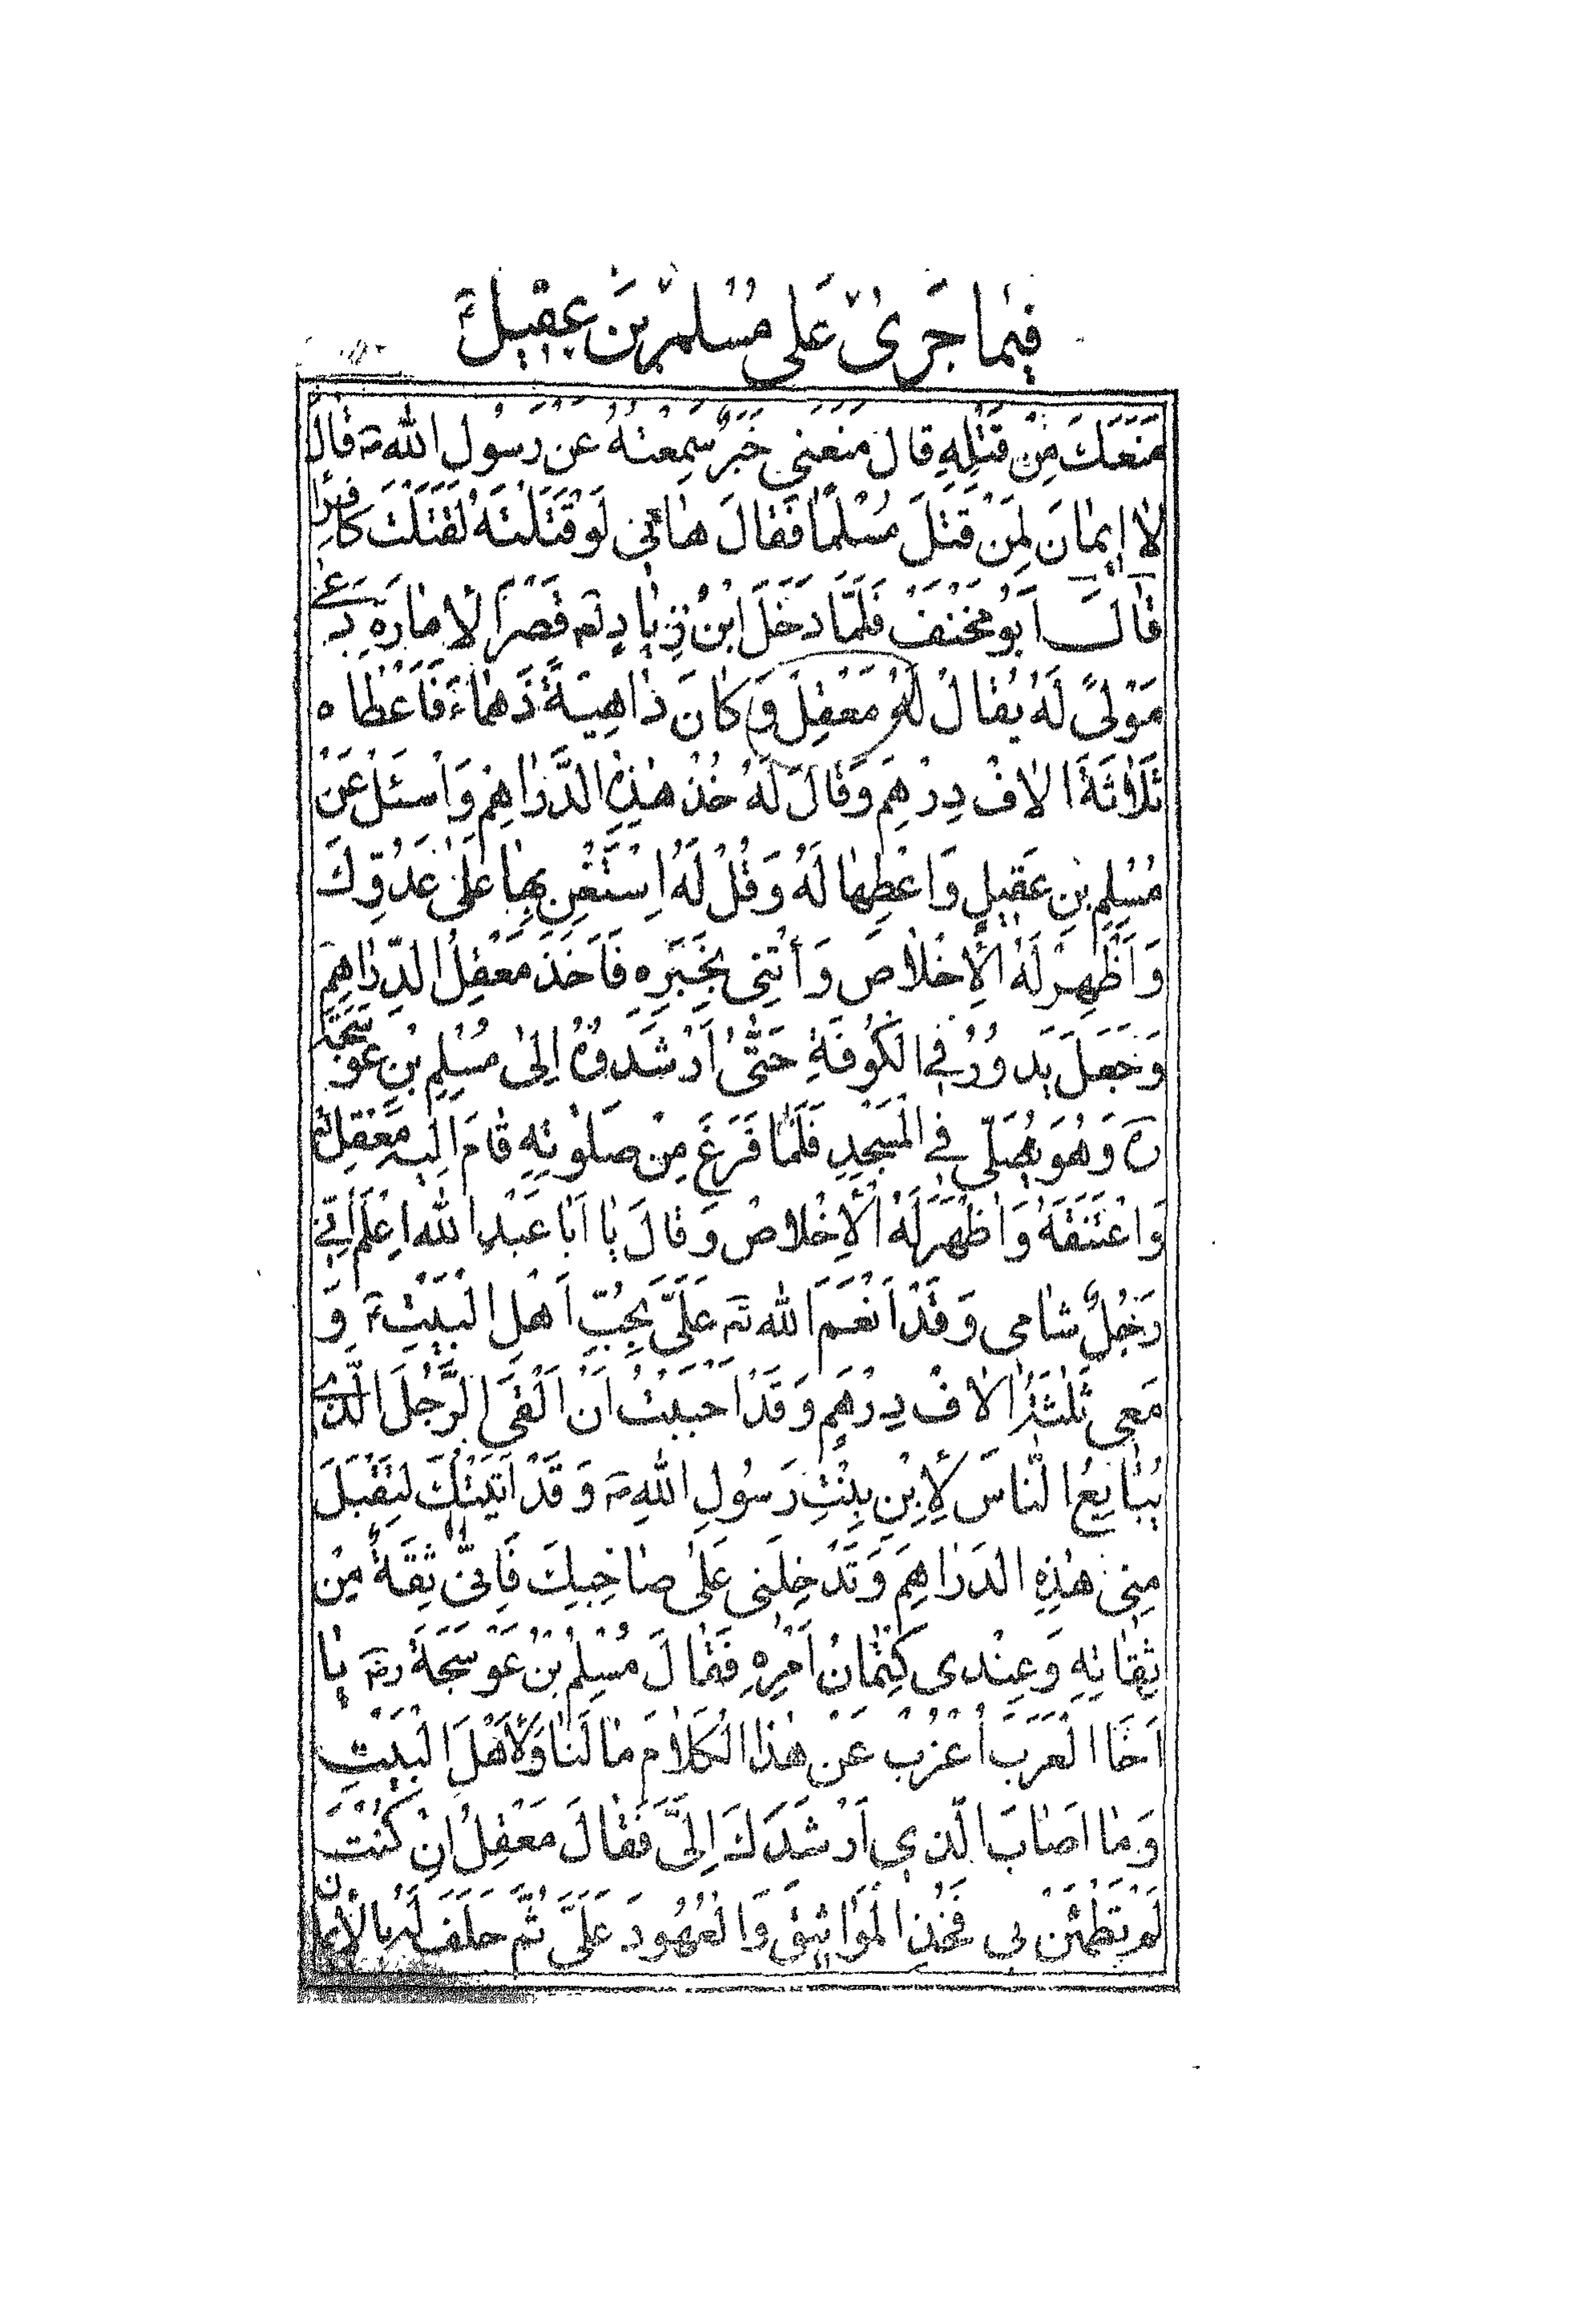 فِيمَا جَرىٰ عَلى مُسْلِمْ بْنَ عَقِيلٍ
مَنَعَكَ مِنْ قَتْلِهِ قالَ مَنَعَنى خَبَرٌ سَمِعْتُهُ عَن رَسُولِ اللّهِ قالَ
لاٰ ايمٰانَ لِمَنْ قَتَلَ مُسْلِمًا فَقالَ هانى لَوْ قَتَلْتَهُ لَقَتَلْتَ كافِرًا
قٰالَ اَبُو مِخْنَفْ فَلَمّا دَخَلَ ابْنُ زِيٰادٍ قَصْرَ الْاِمارَةِ دَعى
مَوْلىً لَهُ يُقالُ لَهُ مَعْقِلْ وَ كانَ ذاهِيَةً ذَهْمٰاءَ فَاَعْطاه
ثَلاٰثَةَ الاٰفْ دِرْهَمِ وَقٰالَ لَهُ خُذْ هٰذِهِ الدَّراهِمْ وَاْسْئَلْ عَنْ
مُسْلِمِ بْنِ عَقيلٍ وَ اَعْطِهٰا لَهُ وَقُلْ لَهُ اِسْتَعْنِ بِهٰا عَلىٰ عَدُوِّكَ
وَ اَظْهِرْ لَهُ الْاِخْلاٰصَ وَ أْتِنى بِخَبَرِه فَاَخَذَ مَعْقِلُ الدَّراهِمَ
وَ جَعَلَ يَدُورُ فِى الْكُوفَةِ حَتّىٰ اَرْشَدُوهُ اِلىٰ مُسْلِمِ بْنِ عَوْسَجَة
رَه وَ هُوَ يُصَلّى فِى الْمَسْجِدِ فَلَمّٰا فَرَغَ مِنْ صَلوٰتِهِ قٰامَ اِلَيْهِ مَعْقِلْ
وَ اعْتَنَقَهُ وَ اَظْهَرَ لَهُ الْاِخْلاصْ وَ قٰالَ يٰا اَبٰا عَبْدِ اللّه اِعْلَمْ اِنّى
رَجُلٌ شامى وَ قَدْ اَنْعَمَ اللّه عَلَىَّ بِحُبِّ اَهْلِ الْبَيْتِ وَ
مَعى ثَلٰثَةُ الاٰفْ دِرْهَمٍ وَ قَدْ اَحْبَبْتُ اَنْ اَلْقَى الرَّجُلَ الَّذى
يُبٰايِعُ النّاسَ لِاِبْنِ بِنْتِ رَسُولِ اللهِ وَ قَدْ اَتَيْتُكَ لِتَقْبَلَ
مِنّى هٰذِهِ الدَّراهِمَ وَ تَدْخِلَنى عَلىٰ صاحِبِكَ فَاِنّى ثِقَةٌ مِنْ
ثِقٰاتِهِ وَ عِنْدى كِتْمٰانُ اَمْرِهِ فَقٰالَ مُسْلِمُ بْنُ عَوْسَجَةَ ره يٰا
اَخَا الْعَرَبَ اُعْزُبْ عَنْ هٰذَا الْكَلاٰمَ مٰا لَنٰا وَلِاَهْلِ الْبَيْتِ
وَ مٰا اَصٰابَ الَّذى اَرْشَدَكَ اِلَىَّ فَقٰالَ مَعْقِلُ اِنْ كُنْتَ
لَمْ تَطْمَئِنْ بى فَخُذِ الْمَوٰاثيقَ وَ الْعُهُودَ عَلَىَّ ثُمَّ حَلَفَ لَهُ بِالْاَيْمانِ